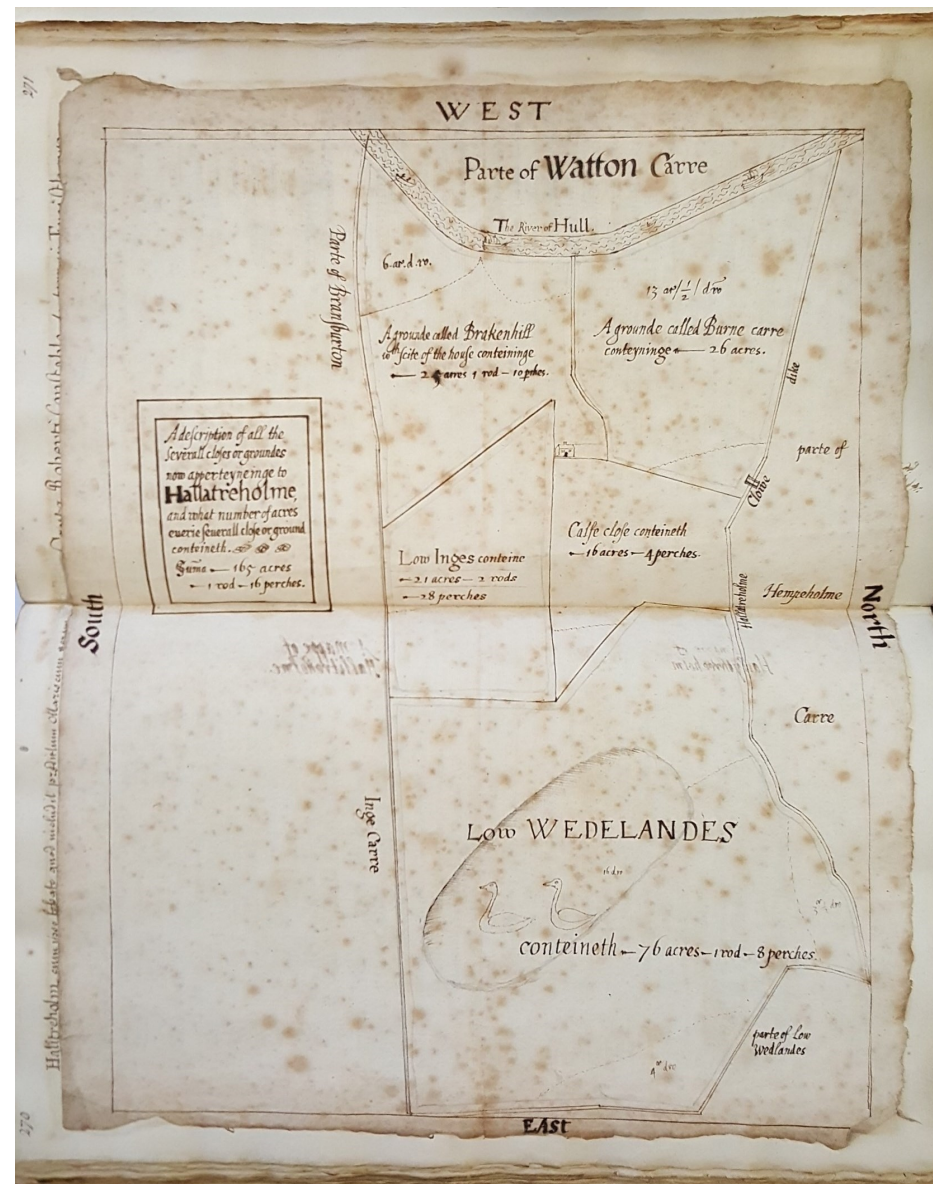 271
WEST
Parte of Watton Carre
The River of Hull.
Parte of Bransburton
6 ac. d. ro.
13 ac / 1/2 / d ro
A grounde called Brakenhill
wth scite of the house conteininge
acres 1 rod – 10 pches.
A grounde called Burne carre
conteyninge — 26 acres.
dike
A description of all the
severall closes or groundes
now apperteyneinge to
Hallatreholme,
and what number of acres
euerie severall close or ground
conteineth.
Suma — 165 acres
1 rod – 16 perches.
parte of
Clowe
Calfe close conteineth
16 acres – 4 perches.
Low Inges conteine
21 acres – 2 rods
28 perches
Hallatreholme
Hempeholme
South
North
A mappe of
Hallitreholme.
Carre
Inge Carre
Low WEDELANDES
16 d ro
conteineth – 76 acres – 1 rod – 8 perches.
parte of Low
Wedlandes
EAST
270